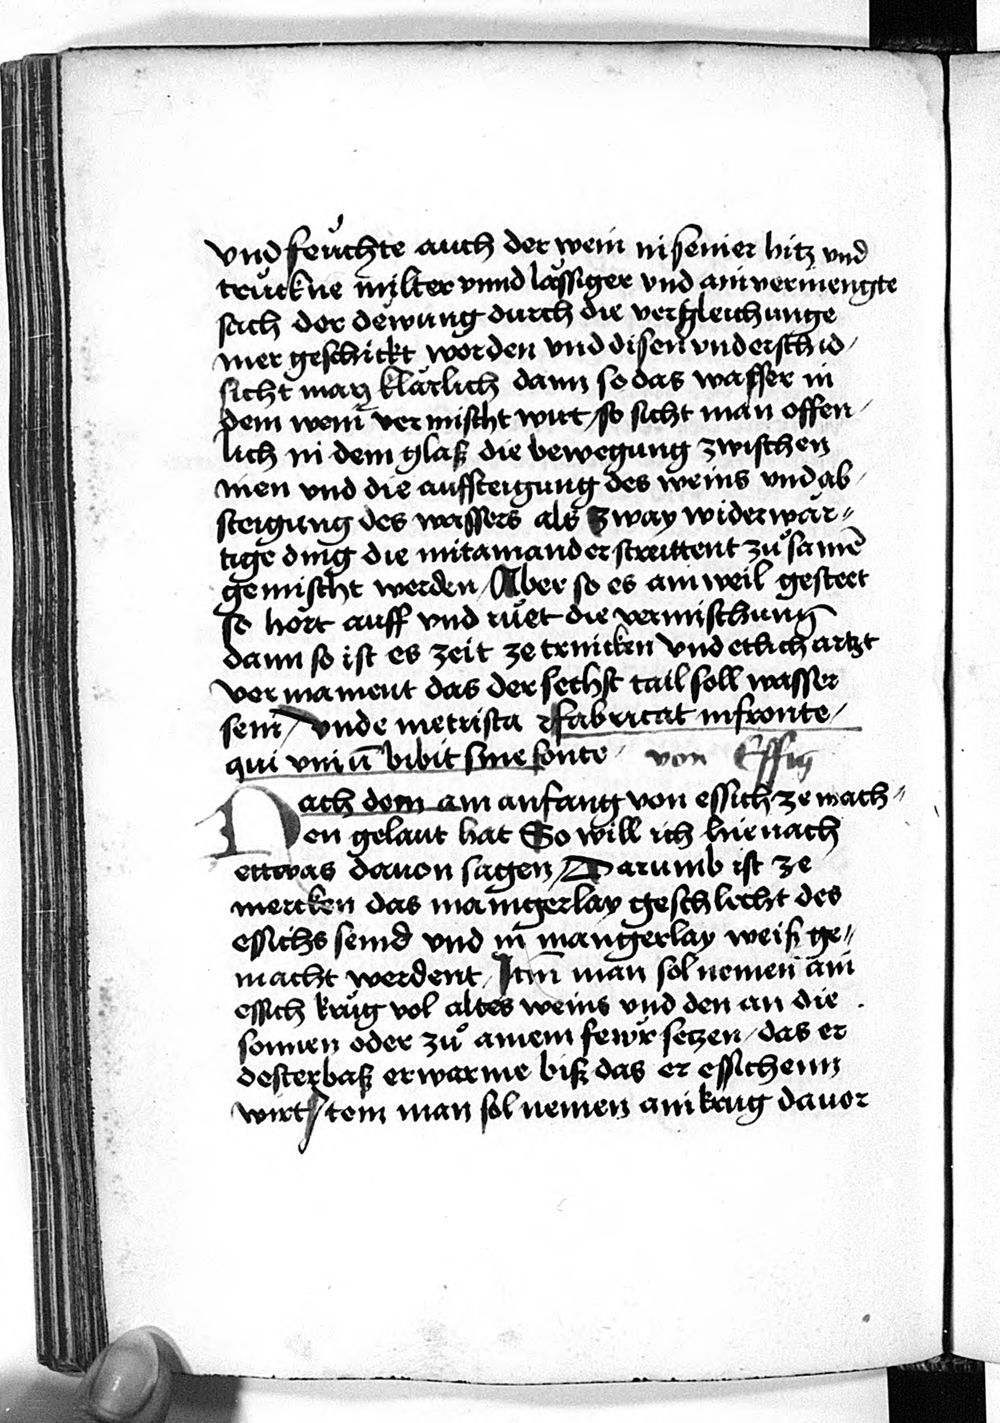 vnd feüchte auch der wein in seiner hitz und
trückne milter vnnd lässiger vnd ain vermengte
sach der dewung durch die vergleichunge
mer geschickt worden vnd disen vnderschid /
sicht man klärlich dann so das wasser in
dem wein vermischt wirt / so sicht man offen /
lich in dem glaß die bewegung zwischen
inen vnd die auffsteigung des weins vnd ab /
steigung des wassers als zway widerwär=
tige ding die mitainander streittent zuͦ samē
gemischt werden / Aber so es ain weil gesteet
so hört auff vnd ruͦet die vermischung
dann so ist es zeit ze trincken vnd etlich artzt
vermainent das der sechst tail soll wasser
sein / vnde metrista fabricat in fronte /
qui vinū bibit sine fonte / von Essig
Nach dem am anfang von essich ze mach=
en gelaut hat So will ich hie nach
ettwas dauon sagen / Darumb ist ze
mercken das mainigerlay geschlecht des
essichs seind vnd in mangerlay weiß ge=
macht werdent / Itm̄ man sol nemen ain
essich krüg vol altes weins vnd den an die
sonnen oder zuͦ ainem fewr setzen / das er
desterbaß erwarme biß das er essichenn
wirt / Item man sol nemen ain krug dauor